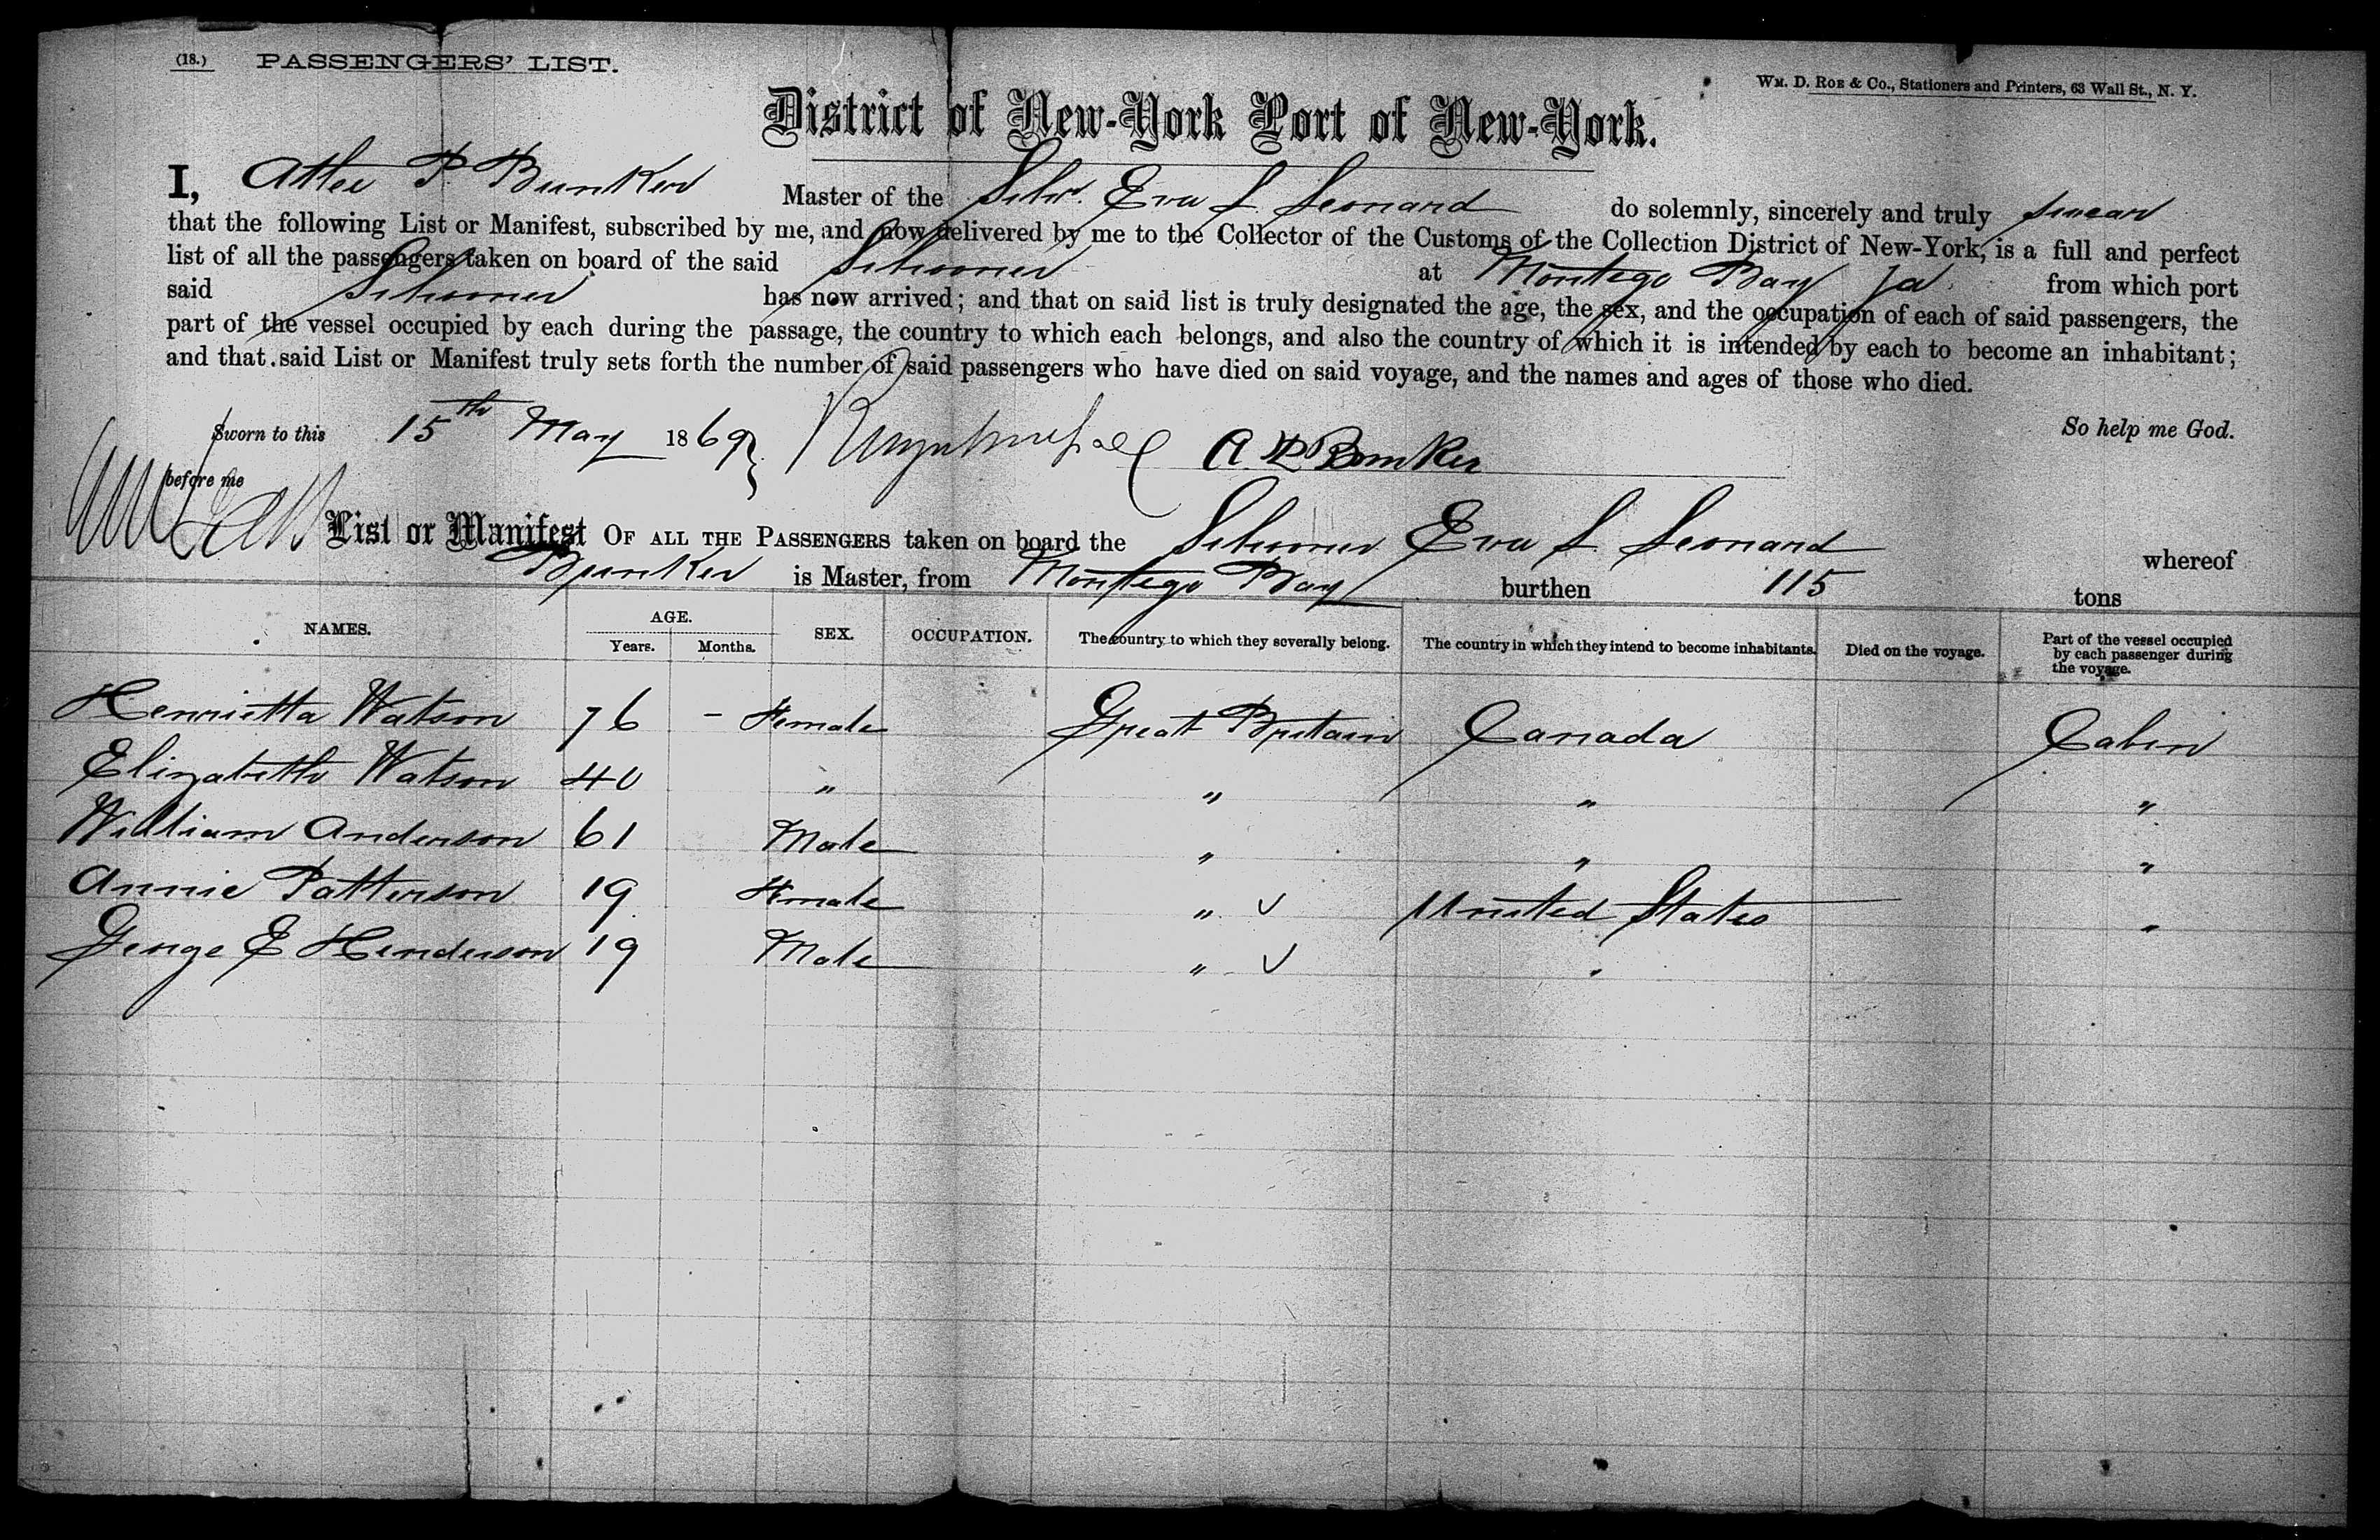 (18.) PASSENGERS' LIST.
WM. D. ROE & CO., Stationers and Printers, 63 Wall St., N. Y.
District of New-York Port of New-York.
I, P. Bunker Master of the Schr. Eva L. Leonard do solemnly, sincerely and truly swear
that the following List or Manifest, subscribed by me, and now delivered by me to the Collector of the Customs of the Collection District of New-York, is a full and perfect
list of all the passengers taken on board of the said Schooner at Montego Bay Ja. from which port
said Schooner has now arrived; and that on said list is truly designated the age, the sex, and the occupation of each of said passengers, the
part of the vessel occupied by each during the passage, the country to which each belongs, and also the country of which it is intended by each to become an inhabitant;
and that said List or Manifest truly sets forth the number of said passengers who have died on said voyage, and the names and ages of those who died.
So help me God.
Sworn to this 15th May 1869 A P Bunker
before me
List or Manifest OF ALL THE PASSENGERS taken on board the Schooner Eva L Leonard whereof
Bunker is Master, from Montego Bay burthen 115 tons
NAMES. AGE. SEX. OCCUPATION. The country to which they severally belong. The country in which they intend to become inhabitants. Died on the voyage. Part of the vessel occupied by each passenger during the voyage.
Years. Months.
Henrietta Watson 76 - Female Great Britain Canada Cabin
Elizabeth Watson 40 " " " "
William Anderson 61 Male " " "
Annie Patterson 19 Female " ✓ United States "
George E Henderson 19 Male " ✓ "